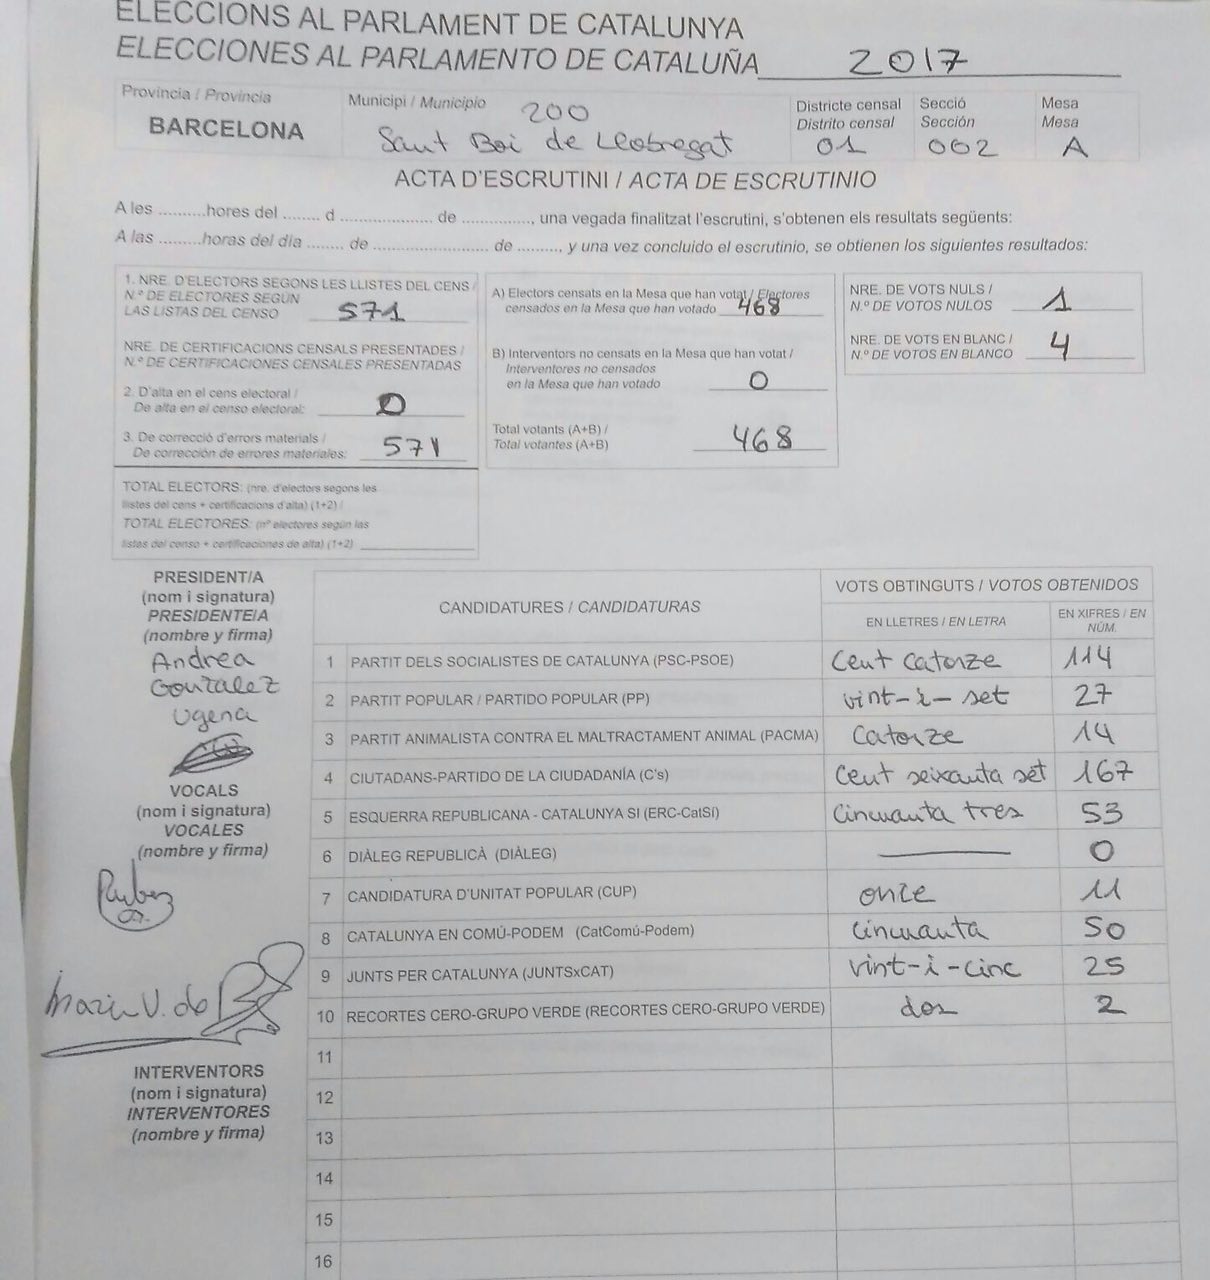 ELECCIONS AL PARLAMENT DE CATALUNYA
ELECCIONES AL PARLAMENTO DE CATALUÑA 2017
Provincia / Provincia
BARCELONA
Municipi / Municipio 200
Sant Boi de Llobregat
Districte censal
Distrito censal
01
Secció
Sección
002
Mesa
Mesa
A
ACTA D'ESCRUTINI / ACTA DE ESCRUTINIO
A les ..........hores del ........ d .................... de ..............., una vegada finalitzat l'escrutini, s'obtenen els resultats següents:
A las .........horas del día ........ de ......................... de .........., y una vez concluido el escrutinio, se obtienen los siguientes resultados:
1. NRE. D'ELECTORS SEGONS LES LLISTES DEL CENS /
N.º DE ELECTORES SEGÚN
LAS LISTAS DEL CENSO 571
NRE. DE CERTIFICACIONS CENSALS PRESENTADES /
N.º DE CERTIFICACIONES CENSALES PRESENTADAS
2. D'alta en el cens electoral /
De alta en el censo electoral: 0
3. De correcció d'errors materials /
De corrección de errores materiales: 571
TOTAL ELECTORS: (nre. d'electors segons les
llistes del cens + certificacions d'alta) (1+2) /
TOTAL ELECTORES: (nº electores según las
listas del censo + certificaciones de alta) (1+2)
A) Electors censats en la Mesa que han votat / Electores
censados en la Mesa que han votado 468
B) Interventors no censats en la Mesa que han votat /
Interventores no censados
en la Mesa que han votado 0
Total votants (A+B) /
Total votantes (A+B) 468
NRE. DE VOTS NULS /
N.º DE VOTOS NULOS 1
NRE. DE VOTS EN BLANC /
N.º DE VOTOS EN BLANCO 4
PRESIDENT/A
(nom i signatura)
PRESIDENTE/A
(nombre y firma)
Andrea
Gonzalez
Ugena
VOCALS
(nom i signatura)
VOCALES
(nombre y firma)
Ruben
INTERVENTORS
(nom i signatura)
INTERVENTORES
(nombre y firma)
CANDIDATURES / CANDIDATURAS
VOTS OBTINGUTS / VOTOS OBTENIDOS
EN LLETRES / EN LETRA
EN XIFRES / EN
NÚM.
1 PARTIT DELS SOCIALISTES DE CATALUNYA (PSC-PSOE) Cent catorze 114
2 PARTIT POPULAR / PARTIDO POPULAR (PP) vint-i-set 27
3 PARTIT ANIMALISTA CONTRA EL MALTRACTAMENT ANIMAL (PACMA) Catorze 14
4 CIUTADANS-PARTIDO DE LA CIUDADANÍA (C's) Cent seixanta set 167
5 ESQUERRA REPUBLICANA - CATALUNYA SI (ERC-CatSí) Cinquanta tres 53
6 DIÀLEG REPUBLICÀ (DIÀLEG) 0
7 CANDIDATURA D'UNITAT POPULAR (CUP) onze 11
8 CATALUNYA EN COMÚ-PODEM (CatComú-Podem) Cinquanta 50
9 JUNTS PER CATALUNYA (JUNTSxCAT) vint-i-cinc 25
10 RECORTES CERO-GRUPO VERDE (RECORTES CERO-GRUPO VERDE) dos 2
11
12
13
14
15
16